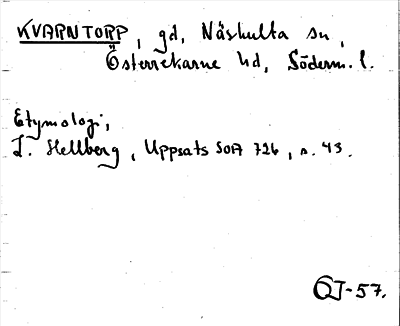 KVARNTORP, gd, Näshulta sn,
Österrekarne hd, Söderm. l.
Etymologi,
L. Hellberg, Uppsats SOA 726, s. 43.
OJ-57.